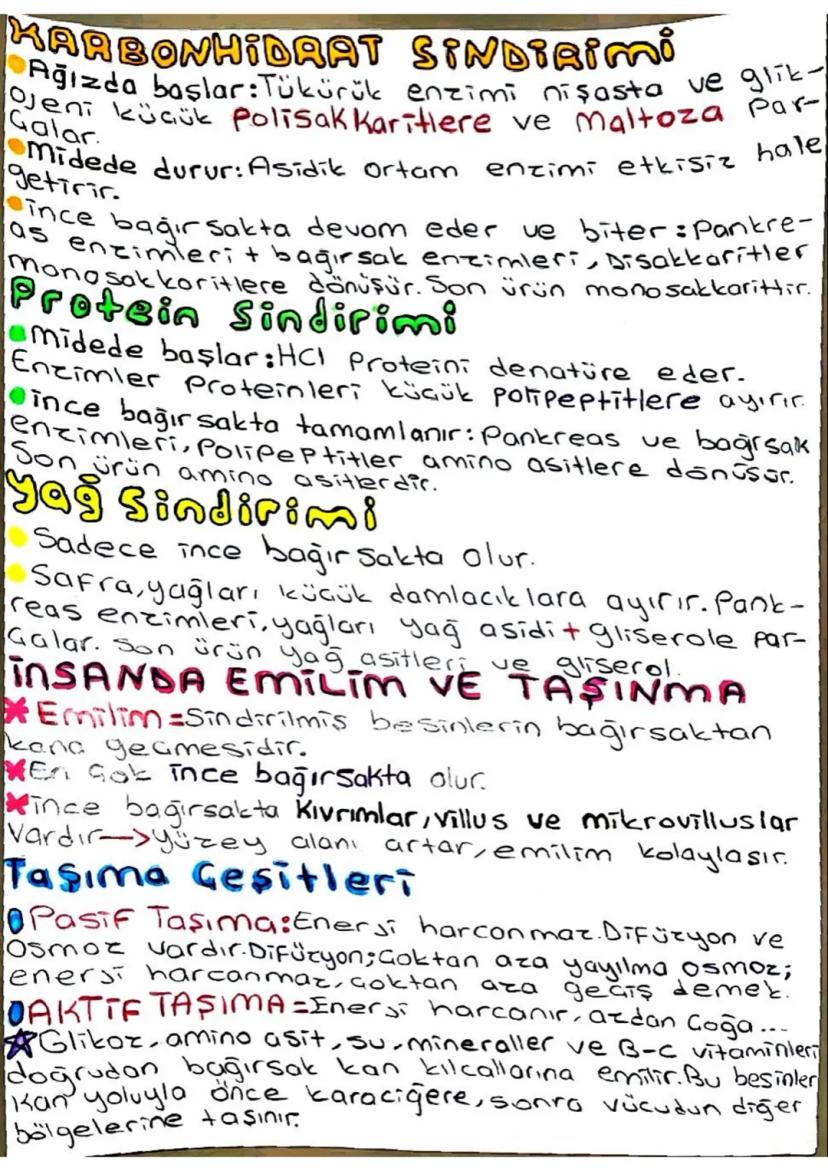 KARBONHİDRAT SİNDİRİMİ
Ağızda başlar: Tükürük enzimi nişasta ve glik-
ojeni küçük Polisakkaritlere ve Maltoza Par-
çalar.
Midede durur: Asidik ortam enzimi etkisiz hale
getirir.
ince bağırsakta devam eder ve biter: Pankre-
as enzimleri + bağırsak enzimleri, Disakkaritler
monosakkaritlere dönüşür. Son ürün monosakkarittir.
Protein Sindirimi
midede başlar: HCl Proteini denatüre eder.
Enzimler Proteinleri küçük polipeptitlere ayırır.
ince bağırsakta tamamlanır: Pankreas ve bağrsak
enzimleri, Polipeptitler amino asitlere dönüşür.
Son ürün amino asitlerdir.
Yağ Sindirimi
Sadece ince bağırsakta olur.
Safra, yağları küçük damlacıklara ayırır. Pank-
reas enzimleri, yağları yağ asidi + gliserole Par-
çalar. Son ürün yağ asitleri ve gliserol.
İNSANDA EMİLİM VE TAŞINMA
Emilim = Sindirilmiş besinlerin bağırsaktan
kana geçmesidir.
En çok ince bağırsakta olur.
ince bağırsakta Kıvrımlar, villus ve mikrovilluslar
vardır → yüzey alanı artar, emilim kolaylaşır.
Taşıma Çeşitleri
Pasif Taşıma: Enerji harcanmaz. Difüzyon ve
Osmoz vardır. Difüzyon; Çoktan aza yayılma osmoz;
enerji harcanmaz, çoktan aza geçiş demek.
AKTİF TAŞIMA = Enerji harcanır, azdan çoğa...
Glikoz, amino asit, su, mineraller ve B-C vitaminleri
doğrudan bağırsak kan kılcallarına emilir. Bu besinler
Kan yoluyla önce karaciğere, sonra vücudun diğer
bölgelerine taşınır.